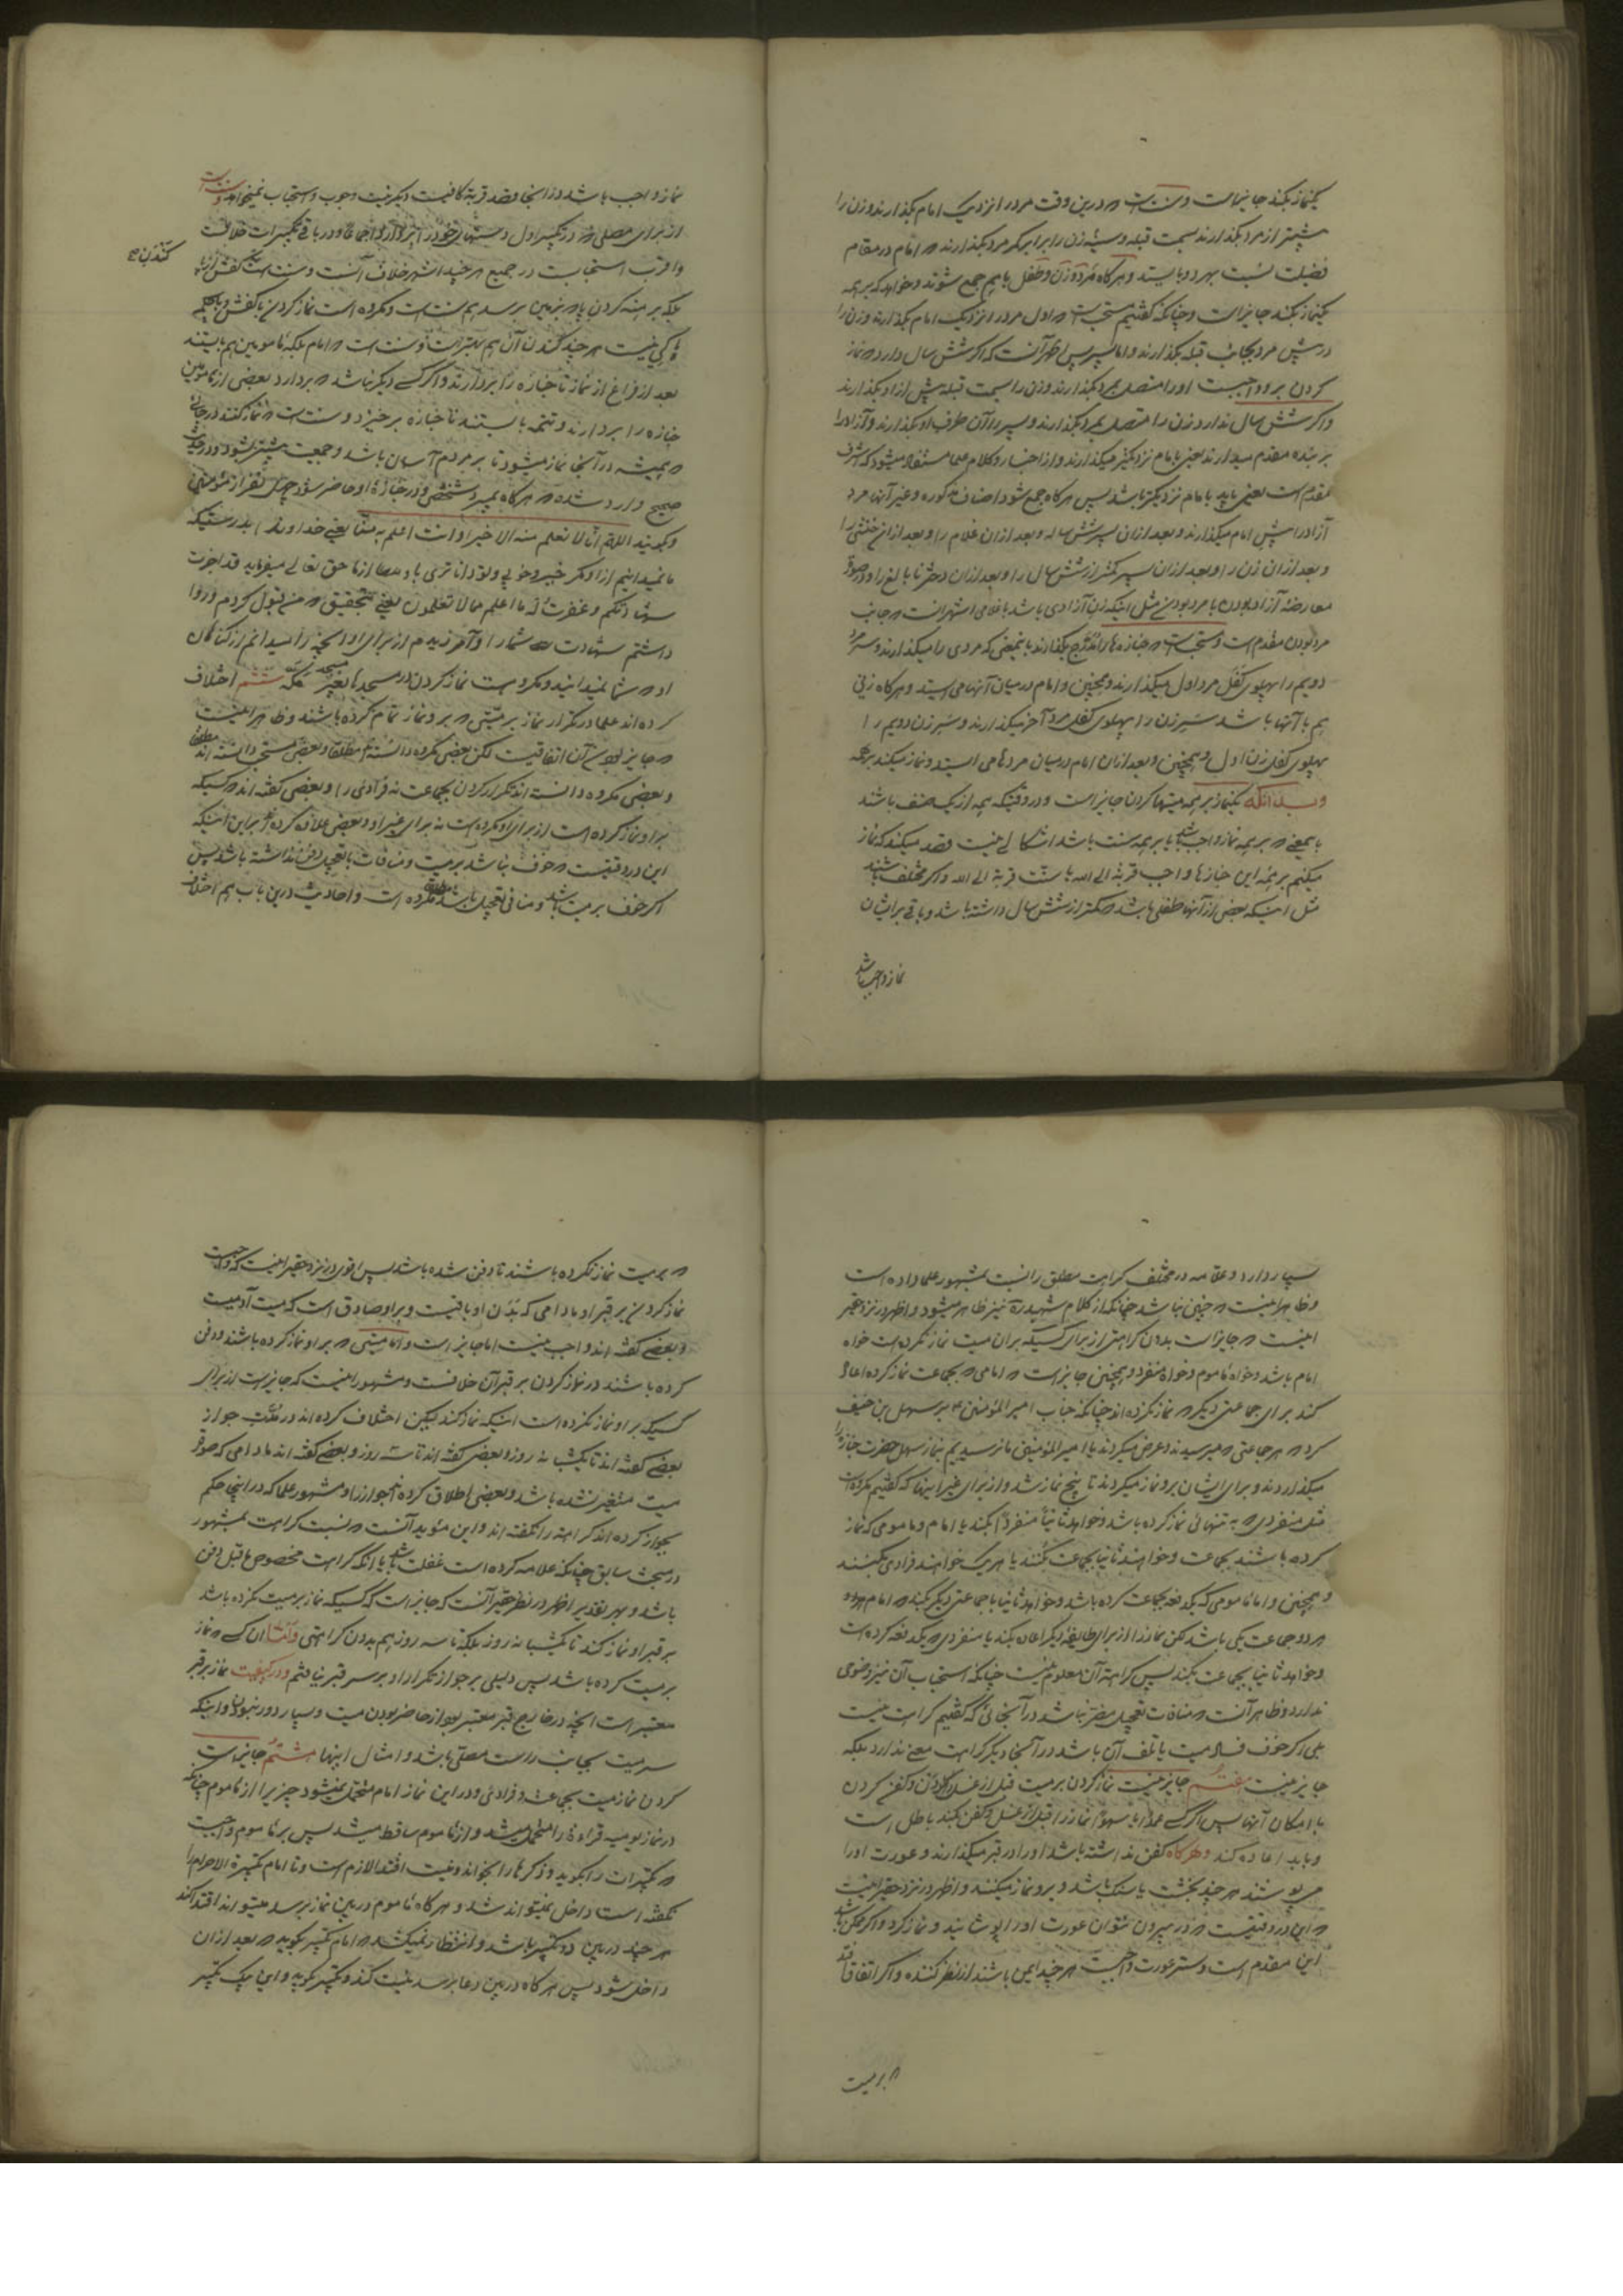 یکنماز بکند جایز است و سنت است که درین وقت مرد را نزدیک امام بگذارند و زن را
پیشتر از مرد بگذارند بسمت قبله و سینه زن را برابر کمر مرد بگذارند که امام در مقام
فضیلت نسبت بهر دو بایستد و هرگاه مرد و زن و طفل باهم جمع شوند و خواهد که بر همه
یکنماز بکند جایز است و چنانکه گفتیم مستحب است که اول مرد را نزدیک امام بگذارند و زن را
در پیش مرد بجانب قبله بگذارند و اما پسر پس اظهر آنست که اگر شش سال دارد که نماز
کردن بر او واجبست او را متصل بمرد بگذارند و زن را بسمت قبله پیش از او بگذارند
و اگر شش سال ندارد زن را متصل بمرد بگذارند و پسر را از آن طرف او بگذارند و آزاد را
بر بنده مقدم میدارند یعنی بامام نزدیکتر میگذارند و از اخبار و کلام علما مستفاد میشود که اشرف
مقدم است یعنی باید بامام نزدیکتر باشد پس هرگاه جمع شود اصناف مذکوره و غیر آنها مرد
آزاد را پیش امام میگذارند و بعد از آن پسر شش ساله و بعد از آن غلام را و بعد از آن خنثی را
و بعد از آن زن را و بعد از آن پسر کمتر از شش سال را و بعد از آن دختر نابالغ را و در صورت
معارضه آزاد بودن با مرد بودن مثل اینکه زن آزادی باشد با غلامی اشهر آنست که جانب
مرد بودن مقدم است و سنت است که جنازه ها را مدرج بگذارند باینمعنی که مردی را میگذارند و سر مرد
دویم را بپهلوی کفل مرد اول میگذارند و همچنین و امام در میان آنها می ایستد و هرگاه زنی
هم با آنها باشد سر زن را بپهلوی کفل مرد آخر میگذارند و سر زن دویم را
بپهلوی کفل زن اول و همچنین و بعد از آن امام در میان مردها می ایستد و نماز میکند بر همه
و بدانکه یکنماز بر همه میتها کردن جایز است و در وقتیکه همه از یک صنف باشند
بایمعنی که بر همه نماز واجب باشد یا بر همه سنت باشد اشکالی نیست قصد میکند که نماز
میکنم بر همه این جنازها واجب قربة الی الله یا سنت قربة الی الله و اگر مختلف باشند
مثل اینکه بعضی از آنها طفلی باشد که کمتر از شش سال داشته باشد و باقی بر ایشان
نماز واجب باشد
نماز واجب باشد در اینجا قصد قربة کافیست و دیگر نیت وجوب و استحباب نمیخواهد و سنت است
از برای مصلی که در تکبیر اول دستهای خود را بردارد اجماعا و در باقی تکبیرات خلافست
و اقرب استحبابست در جمیع هر چند اشهر خلاف آنست و سنت است کندن کفش از پا
کندن ص
بلکه برهنه کردن پا که بزمین برسد هم سنت است و مکروه است نماز کردن با کفش و با چکمه
باکی نیست هر چند کندن آن هم بهتر است و سنت است که امام بلکه مامومین هم بایستند
بعد از فراغ از نماز تا جنازه را بردارند و اگر کسی دیگر نباشد که بردارد بعضی از مامومین
جنازه را بردارند و تتمه بایستند تا جنازه برخیزد و سنت است که نماز کنند در جائی
که همیشه در آنجا نماز میشود تا بر مردم آسان باشد و جمعیت بیشتر شود و در حدیث
صحیح وارد شده که هرگاه بمیرد شخصی و در جنازه او حاضر شود چهل نفر از مؤمنین
و بگویند اللهم انا لا نعلم منه الا خیرا و انت اعلم به منا یعنی خداوندا بدرستیکه
ما نمیدانیم از او مگر خیر و خوبی و تو داناتری باو از ما حق تعالی میفرماید قد اجزت
شهاداتکم و غفرت له ما اعلم مما لا تعلمون یعنی بتحقیق که من قبول کردم و روا
داشتم شهادت شما را و آمرزیدم از برای او آنچه را میدانم از گناهان
او که شما نمیدانید و مکروهست نماز کردن در مسجدها بغیر مسجد مکه ششم اختلاف
کرده اند علما در تکرار نماز بر میتی که بر او نماز تمام کرده باشند و ظاهر اینست
که جایز بودن آن اتفاقیست لکن بعضی مکروه دانسته اند مطلقا و بعضی مستحب دانسته اند مطلقا
و بعضی مکروه دانسته اند تکرار کردن بجماعت نه فرادی را و بعضی گفته اند که کسیکه
بر او نماز کرده است از برای او مکروه است نه برای غیر او و بعضی علاوه کرده اند بر این اینکه
این در وقتیست که خوف نباشد بر میت و منافات با تعجیل دفن نداشته باشد پس
اگر خوف بر میت باشد و منافی تعجیل باشد مکروه است و احادیث درین باب هم اختلاف
بسیار دارد و علامه در مختلف کراهت مطلق را نسبت بمشهور علما داده است
و ظاهر اینست که چنین نباشد چنانکه از کلام شهید ره نیز ظاهر میشود و اظهر در نزد حقیر
اینست که جایز است بدون کراهتی از برای کسیکه بر آن میت نماز نکرده است خواه
امام باشد و خواه ماموم و خواه منفرد و همچنین جایز است که امامی که بجماعت نماز کرده اعاده
کند برای جماعتی دیگر که نماز نکرده اند چنانکه جناب امیر المؤمنین ع بر سهل بن حنیف
کرد که هر جماعتی که میرسیدند و عرض میکردند یا امیر المؤمنین ما نرسیدیم بنماز سهل حضرت جنازه را
میگذاردند و برای ایشان بر او نماز میکردند تا پنج نماز شد و از برای غیر اینها که گفتیم مکروه است
مثل منفردی که به تنهائی نماز کرده باشد و خواهد ثانیا منفردا بکند یا امام و مامومی که نماز
کرده باشند بجماعت و خواهند ثانیا بجماعت بکنند یا هر یک خواهند فرادی بکنند
و همچنین و اما مامومی که یکدفعه بجماعت کرده باشد و خواهد ثانیا با جماعتی دیگر بکند که امام هر دو
هر دو جماعت یکی باشد لکن نماز را از برای طایفه دیگر اعاده بکند یا منفردی که یکدفعه کرده است
و خواهد ثانیا بجماعت بکند پس کراهت آن معلوم نیست چنانکه استحباب آن نیز وضوحی
ندارد و ظاهر آنست که منافات تعجیل مضر نباشد در آنجائی که گفتیم کراهت نیست
بلی اگر خوف فساد میت یا تلف آن باشد در آنجا دیگر کراهت معنی ندارد بلکه
جایز نیست هفتم جایز نیست نماز کردن بر میت قبل از غسل دادن و کفن کردن
با امکان آنها پس اگر کسی عمدا یا سهوا نماز را قبل از غسل و کفن بکند باطل است
و باید اعاده کند و هرگاه کفن نداشته باشد او را در قبر میگذارند و عورت او را
میپوشند هر چند بخشت یا سنگ باشد و بر او نماز میکنند و اظهر در نزد حقیر اینست
که این در وقتیست که در بیرون نتوان عورت او را پوشانید و نماز کرد و اگر ممکن باشد
این مقدم است و ستر عورت واجبست هر چند ایمن باشند از نظر کننده و اگر اتفاق افتد
که بر میت
که بر میت نماز نکرده باشند تا دفن شده باشد پس اقوی در نزد حقیر اینست که واجبست
نماز کردن بر قبر او مادامی که بدن او باقیست و بر او صادق است که میت آدمیست
و بعضی گفته اند واجب نیست اما جایز است و اما میتی که بر او نماز کرده باشند و دفن
کرده باشند در نماز کردن بر قبر آن خلافست و مشهور اینست که جایز است از برای
کسیکه بر او نماز نکرده است اینکه نماز کند لیکن اختلاف کرده اند در مدت جواز
بعضی گفته اند تا یکشبانه روز و بعضی گفته اند تا سه روز و بعضی گفته اند مادامی که صورت
میت متغیر نشده باشد و بعضی اطلاق کرده اند جواز را و مشهور علما که در اینجا حکم
بجواز کرده اند کراهت را نگفته اند و این مؤید آنست که نسبت کراهت بمشهور
در مبحث سابق چنانکه علامه کرده است غفلت باشد یا آنکه کراهت مخصوص ما قبل دفن
باشد و بهر تقدیر اظهر در نظر حقیر آنست که جایز است که کسیکه نماز بر میت نکرده باشد
بر قبر او نماز کند تا یکشبانه روز بلکه تا سه روز هم بدون کراهتی و اما آن کسی که نماز
بر میت کرده باشد پس دلیلی بر جواز تکرار او بر سر قبر نیافتم و در کیفیت نماز بر قبر
معتبر است آنچه در خارج قبر معتبر بود از حاضر بودن میت و بسیار دور نبودن و اینکه
سر میت بجانب راست مصلی باشد و امثال اینها هشتم جایز است
کردن نماز میت بجماعت و فرادی و در این نماز امام متحمل نمیشود چیزیرا از ماموم چنانکه
در نماز یومیه قراءة را متحمل میشد و از ماموم ساقط میشد پس بر ماموم واجبست
که تکبیرات را بگوید و ذکرها را بخواند و نیت اقتدا لازم است و تا امام تکبیرة الاحرام را
نگفته است داخل نمیتواند شد و هرگاه ماموم در بین نماز برسد میتواند اقتدا کند
هر چند در بین دو تکبیر باشد و انتظار نمیکشد که امام تکبیر بگوید که بعد از آن
داخل شود پس هرگاه در بین دعا برسد نیت کند و تکبیر بگوید و این یک تکبیر